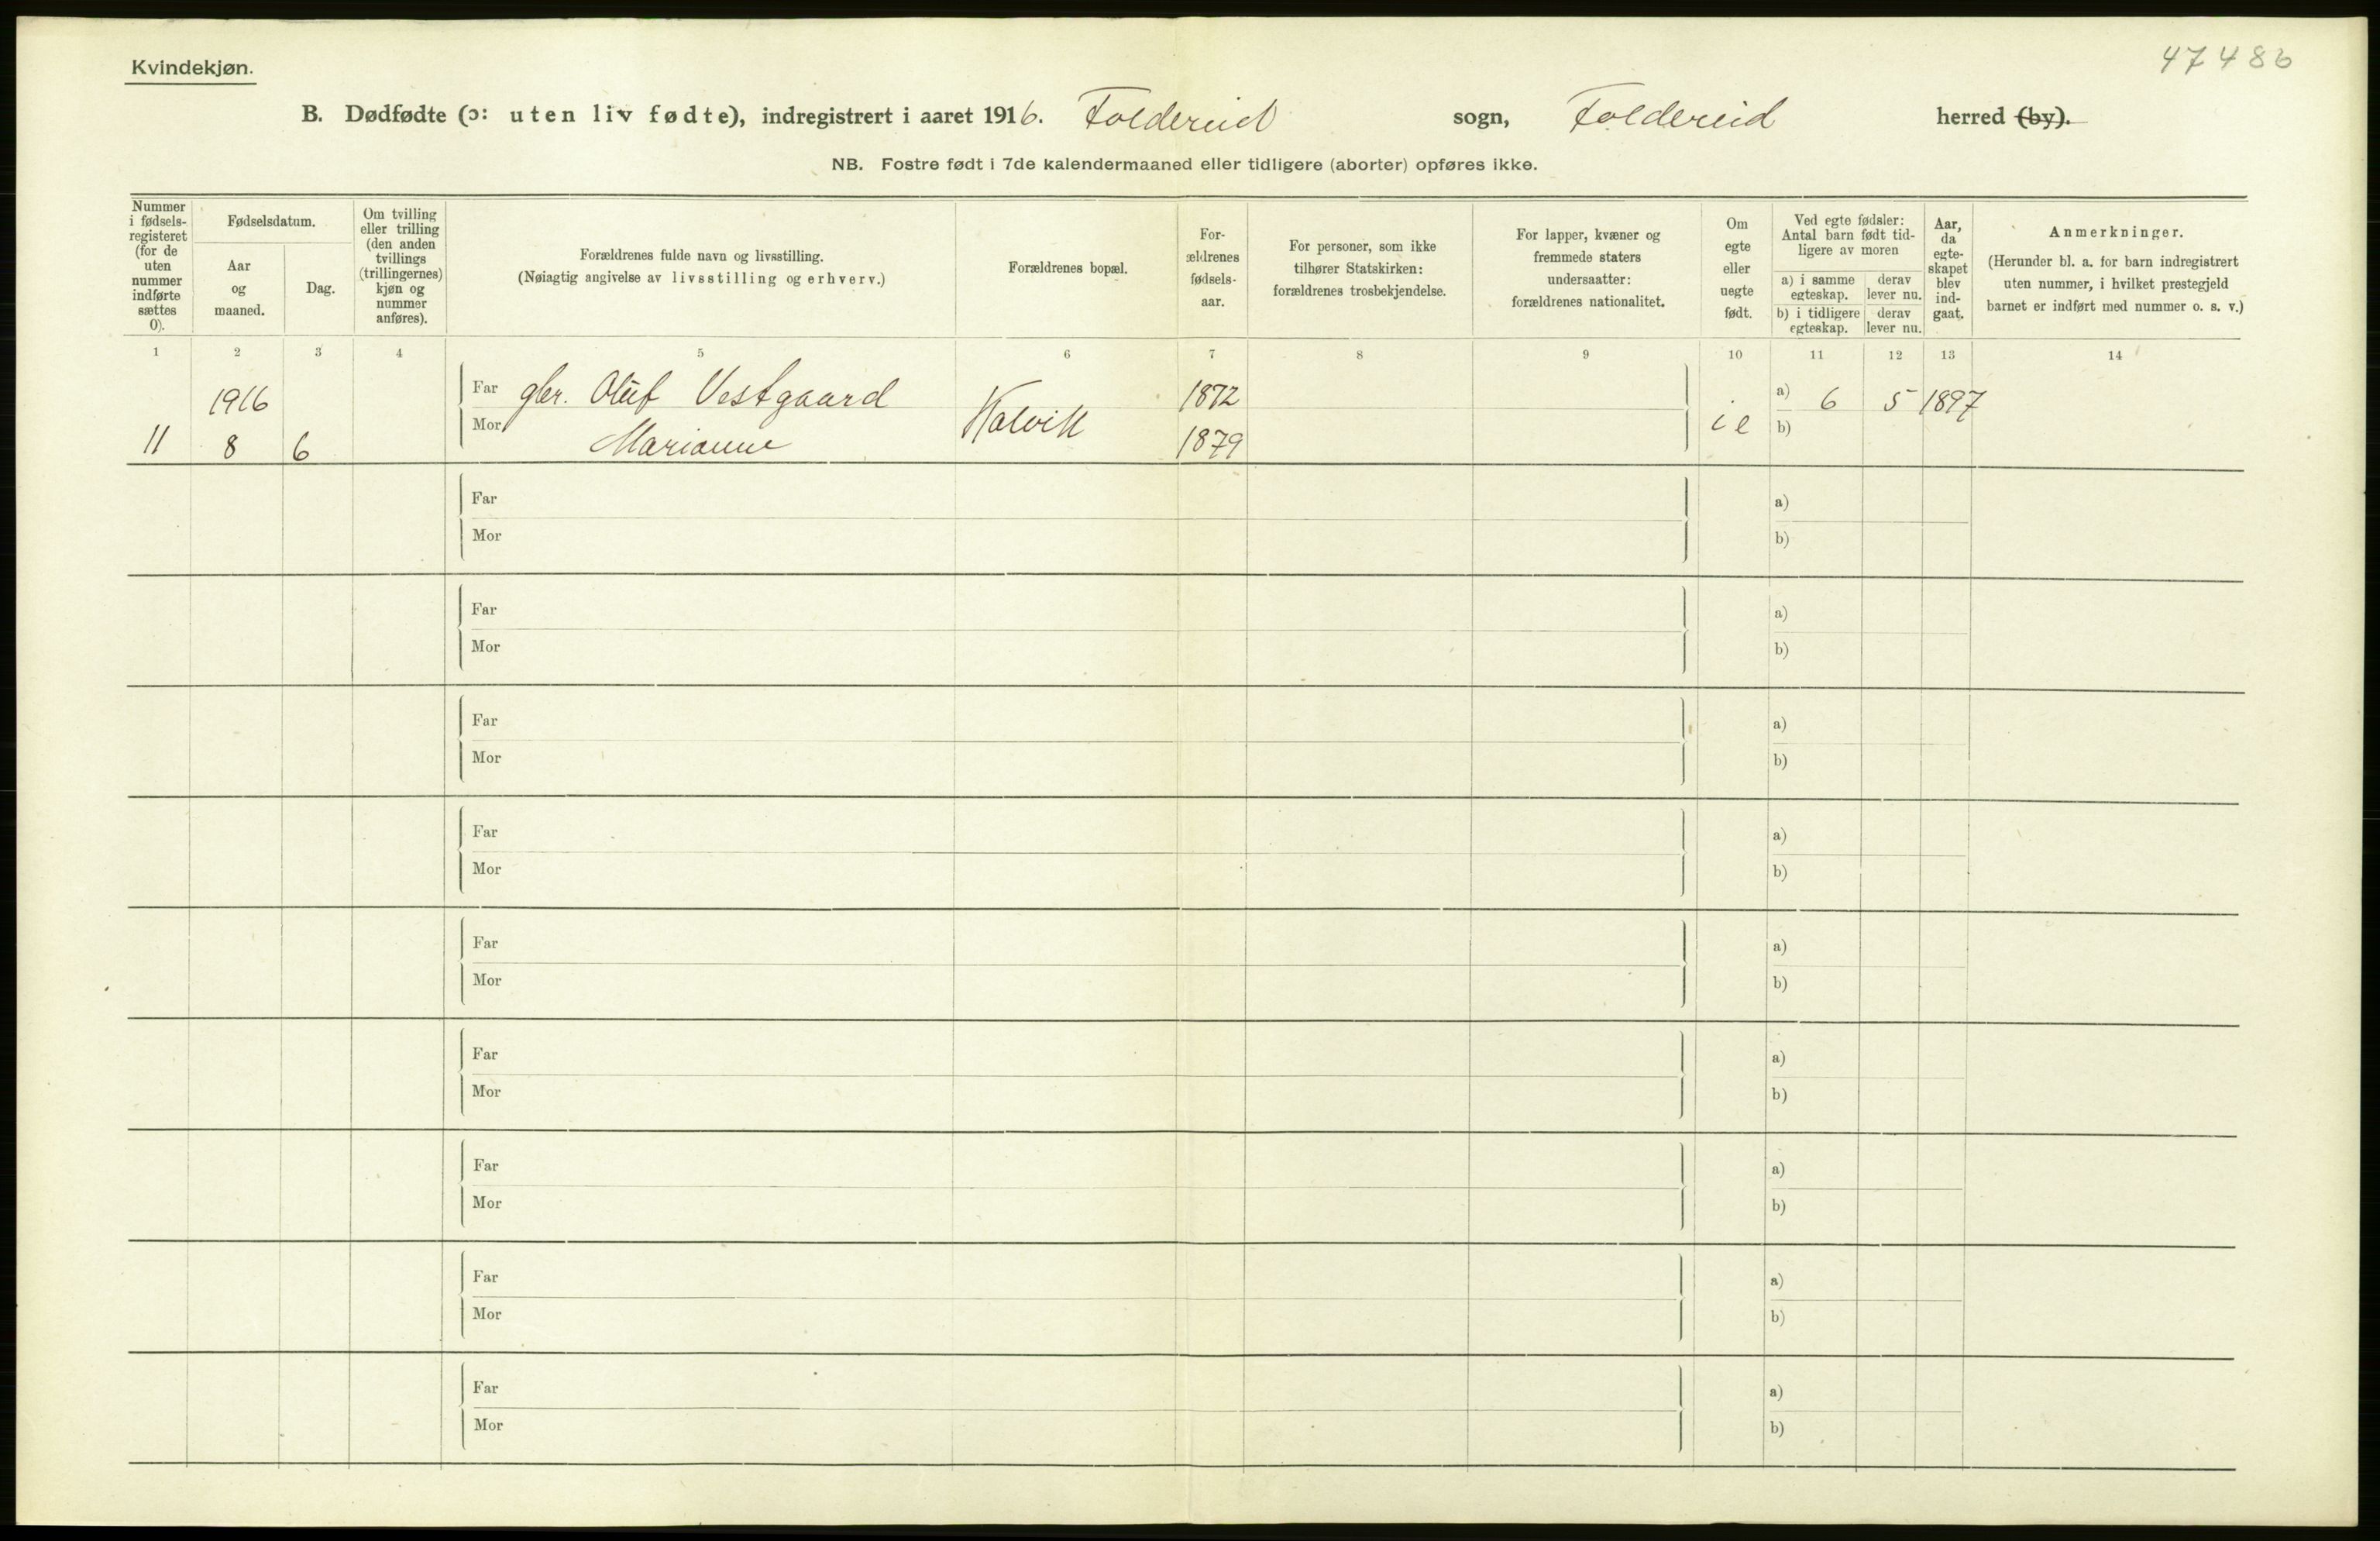 47486
Kvindekjøn.
B. Dødfødte (ɔ: uten liv fødte), indregistrert i aaret 1916. Foldereid sogn, Foldereid herred (by).
NB. Fostre født i 7de kalendermaaned eller tidligere (aborter) opføres ikke.
Nummer
i fødsels-
registeret
(for de
uten
nummer
indførte
sættes
0).
Fødselsdatum.
Aar
og
maaned.
Dag.
Om tvilling
eller trilling
(den anden
tvillings
(trillingernes)
kjøn og
nummer
anføres).
Forældrenes fulde navn og livsstilling.
(Nøiagtig angivelse av livsstilling og erhverv.)
Forældrenes bopæl.
For-
ældrenes
fødsels-
aar.
For personer, som ikke
tilhører Statskirken:
forældrenes trosbekjendelse.
For lapper, kvæner og
fremmede staters
undersaatter:
forældrenes nationalitet.
Om
egte
eller
uegte
født.
Ved egte fødsler:
Antal barn født tid-
ligere av moren
a) i samme
egteskap.
derav
lever nu.
b) i tidligere
egteskap.
derav
lever nu.
Aar,
da
egte-
skapet
blev
ind-
gaat.
Anmerkninger.
(Herunder bl. a. for barn indregistrert
uten nummer, i hvilket prestegjeld
barnet er indført med nummer o. s. v.)
1 2 3 4 5 6 7 8 9 10 11 12 13 14
1916 Far gbr. Oluf Vestgaard 1872 a) 6 5 1897
11 8 6 Mor Marianne Kalvik 1879 i e b)
Far a)
Mor b)
Far a)
Mor b)
Far a)
Mor b)
Far a)
Mor b)
Far a)
Mor b)
Far a)
Mor b)
Far a)
Mor b)
Far a)
Mor b)
Far a)
Mor b)